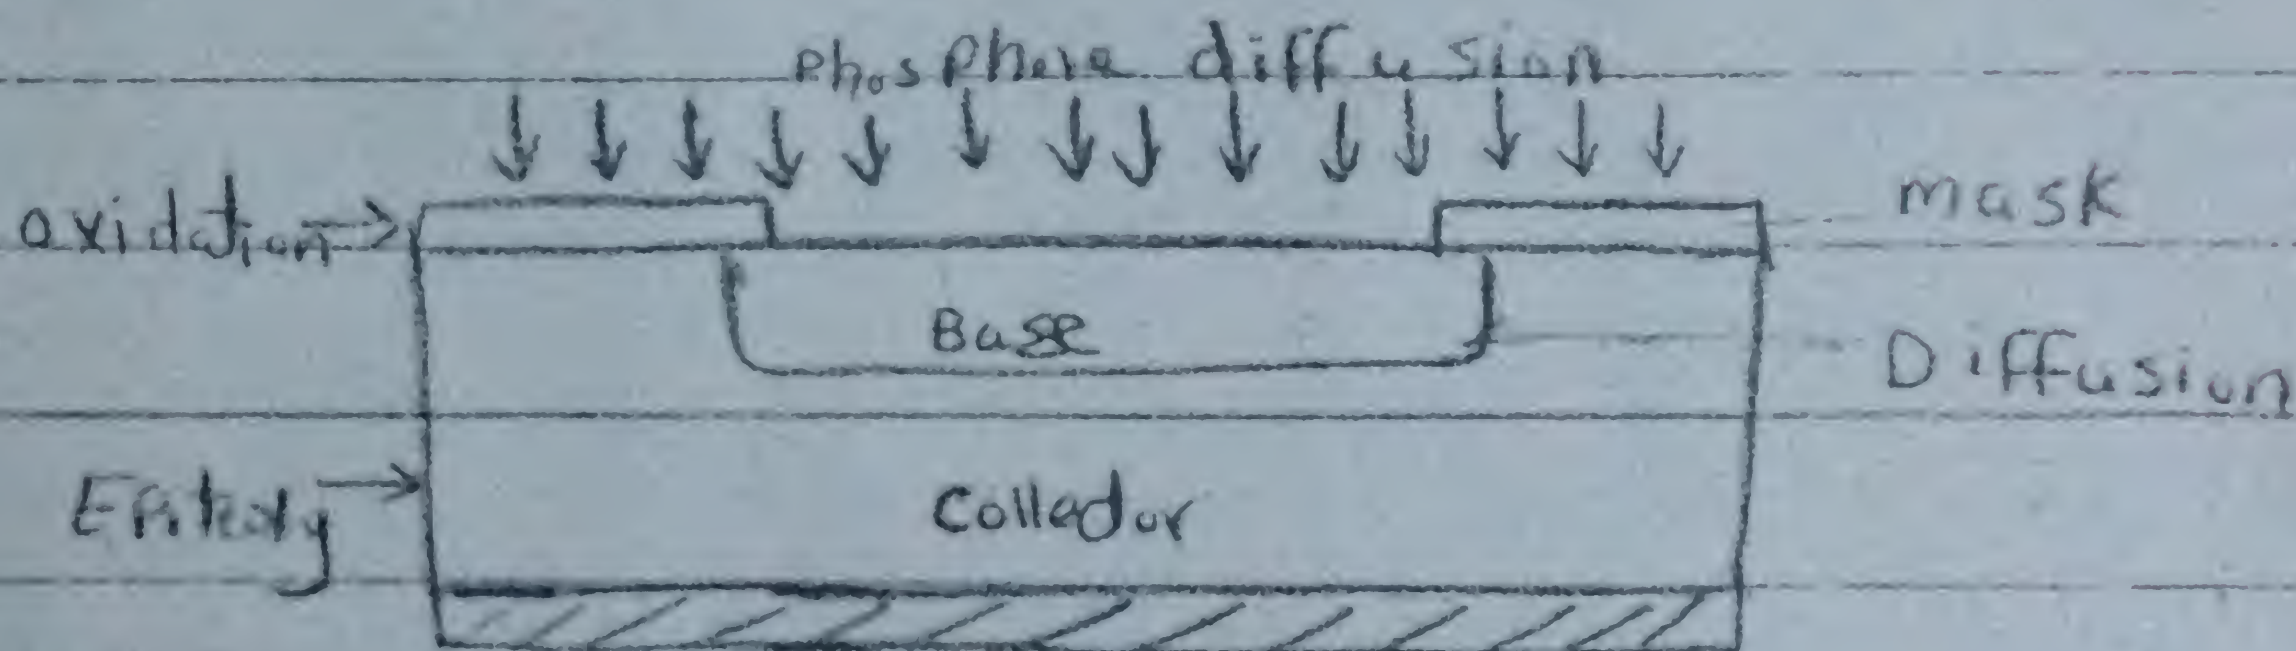 Phosphere diffusion
oxidation
mask
Base
Diffusion
Epitaxy
Collector